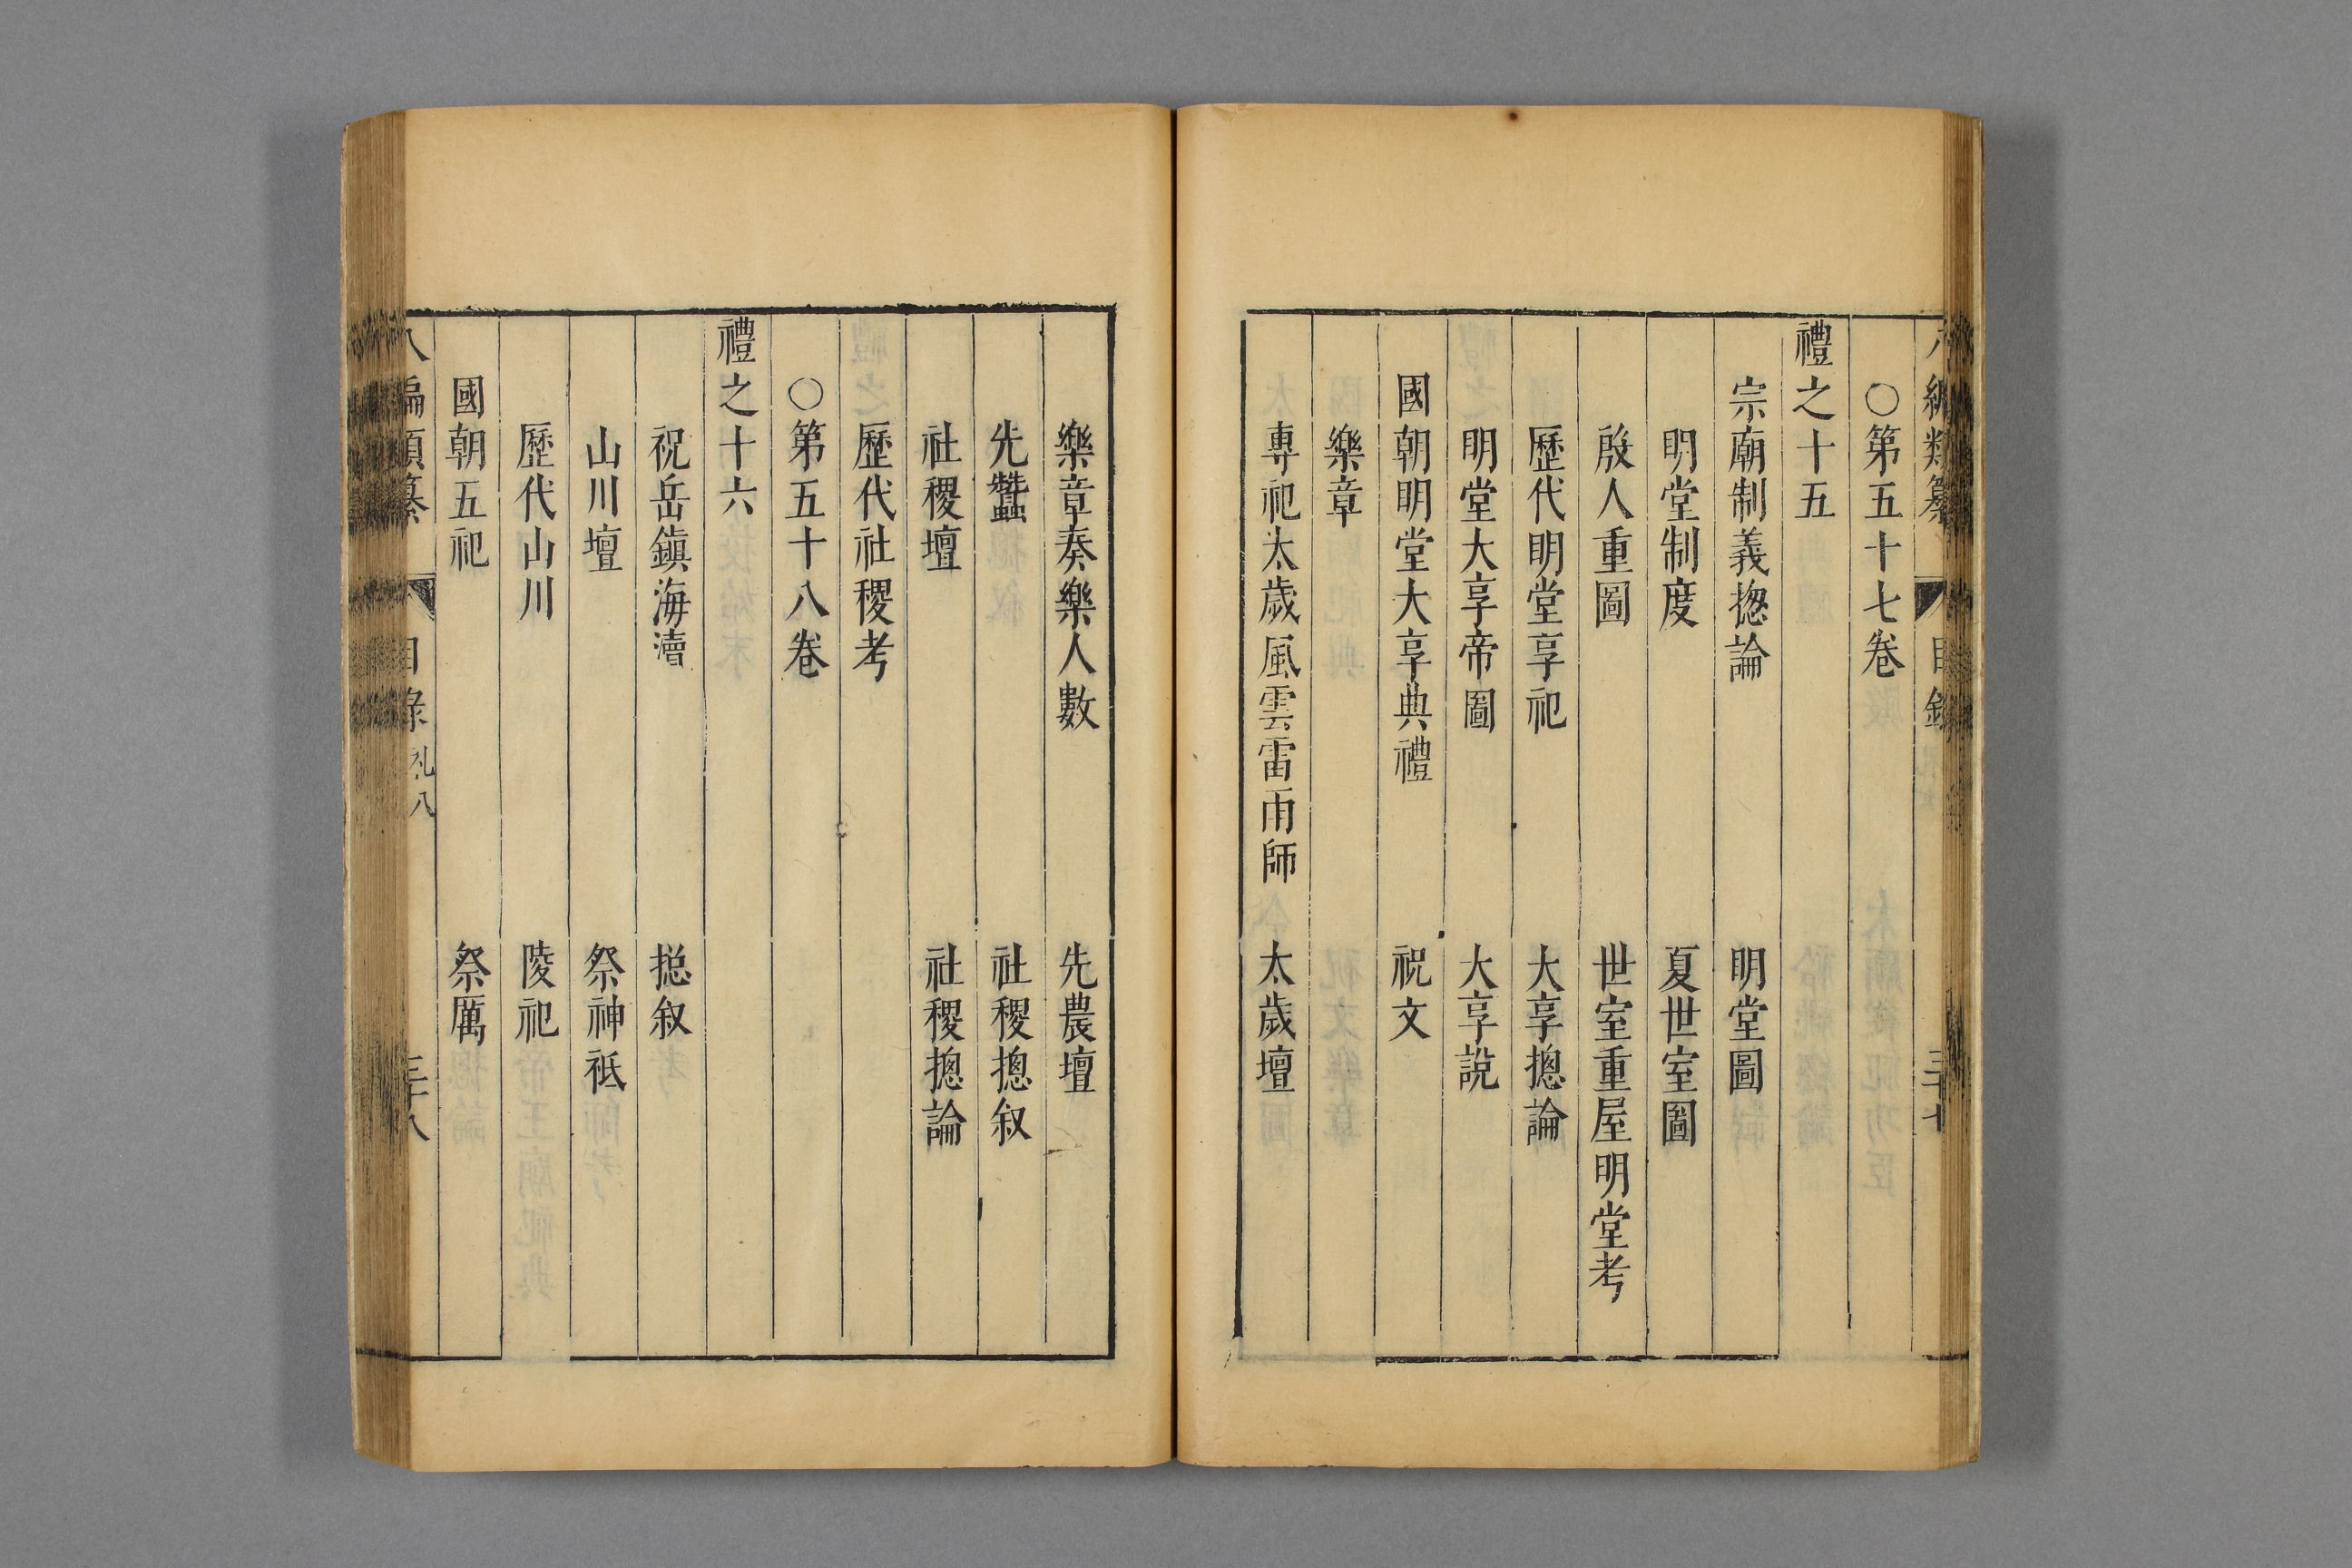 八編類纂 目錄 三十七
○第五十七卷
禮之十五
宗廟制義揔論 明堂圖
明堂制度 夏世室圖
殷人重圖 世室重屋明堂考
歷代明堂享祀 大享摠論
明堂大享帝圖 大享說
國朝明堂大享典禮 祝文
樂章
專祀太歲風雲雷雨師 太歲壇
樂章奏樂人數 先農壇
先蠶 社稷摠叙
社稷壇 社稷摠論
歷代社稷考
○第五十八卷
禮之十六
祝岳鎮海瀆 揔叙
山川壇 祭神祇
歷代山川 陵祀
國朝五祀 祭厲
八編類纂 目錄 礼八 三十八